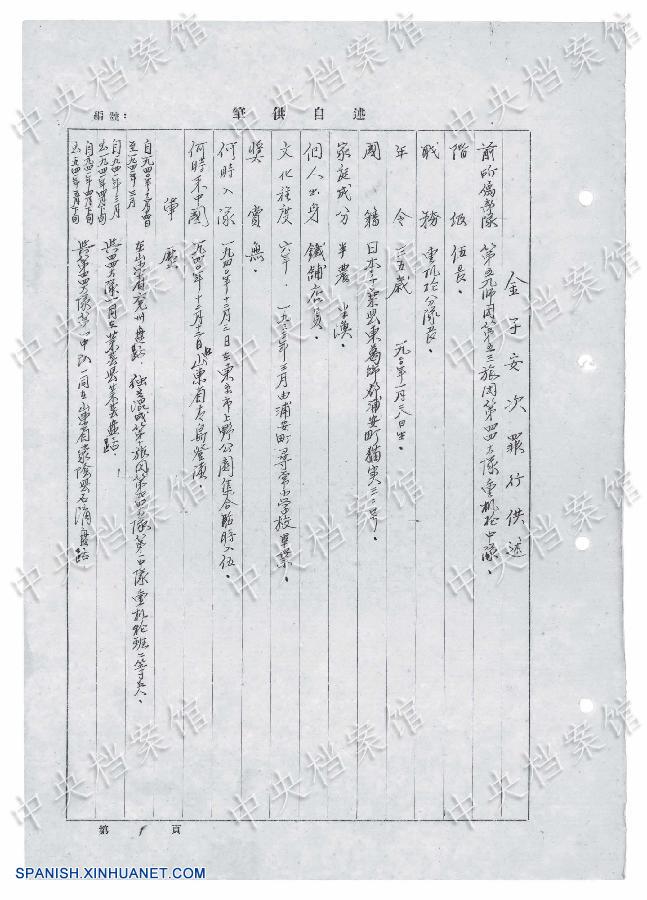 編號:
筆供自述
金子安次罪行供述
前所屬部隊 第五九師団第五三旅団第四四大隊重机枪中隊.
階級 伍長.
職務 重机枪分隊長.
年令 三五歲 一九二〇年一月二八日生.
國籍 日本千葉県東葛飾郡浦安町猫实三二号.
家庭成分 半農半漁.
個人出身 鐵鋪店員.
文化程度 六年. 一九三二年三月由浦安町尋常小学校畢業.
奖賞 無.
何時入隊 一九四〇年十二月二日在東京市上野公園集合臨時入伍.
何時来中国 一九四〇年十二月十二日由山東省青島登陸.
軍歷
至一九四一年三月 在山東省兗州盘踞. 独立混成第一〇旅団第四四大隊第一中隊重机枪班二等兵.
自一九四一年三月 四四大隊一同在莱蕪县莱蕪盘踞.
第四四大隊第一中队一同在山東省蒙陰县盘踞
第1頁
中央档案馆
SPANISH.XINHUANET.COM